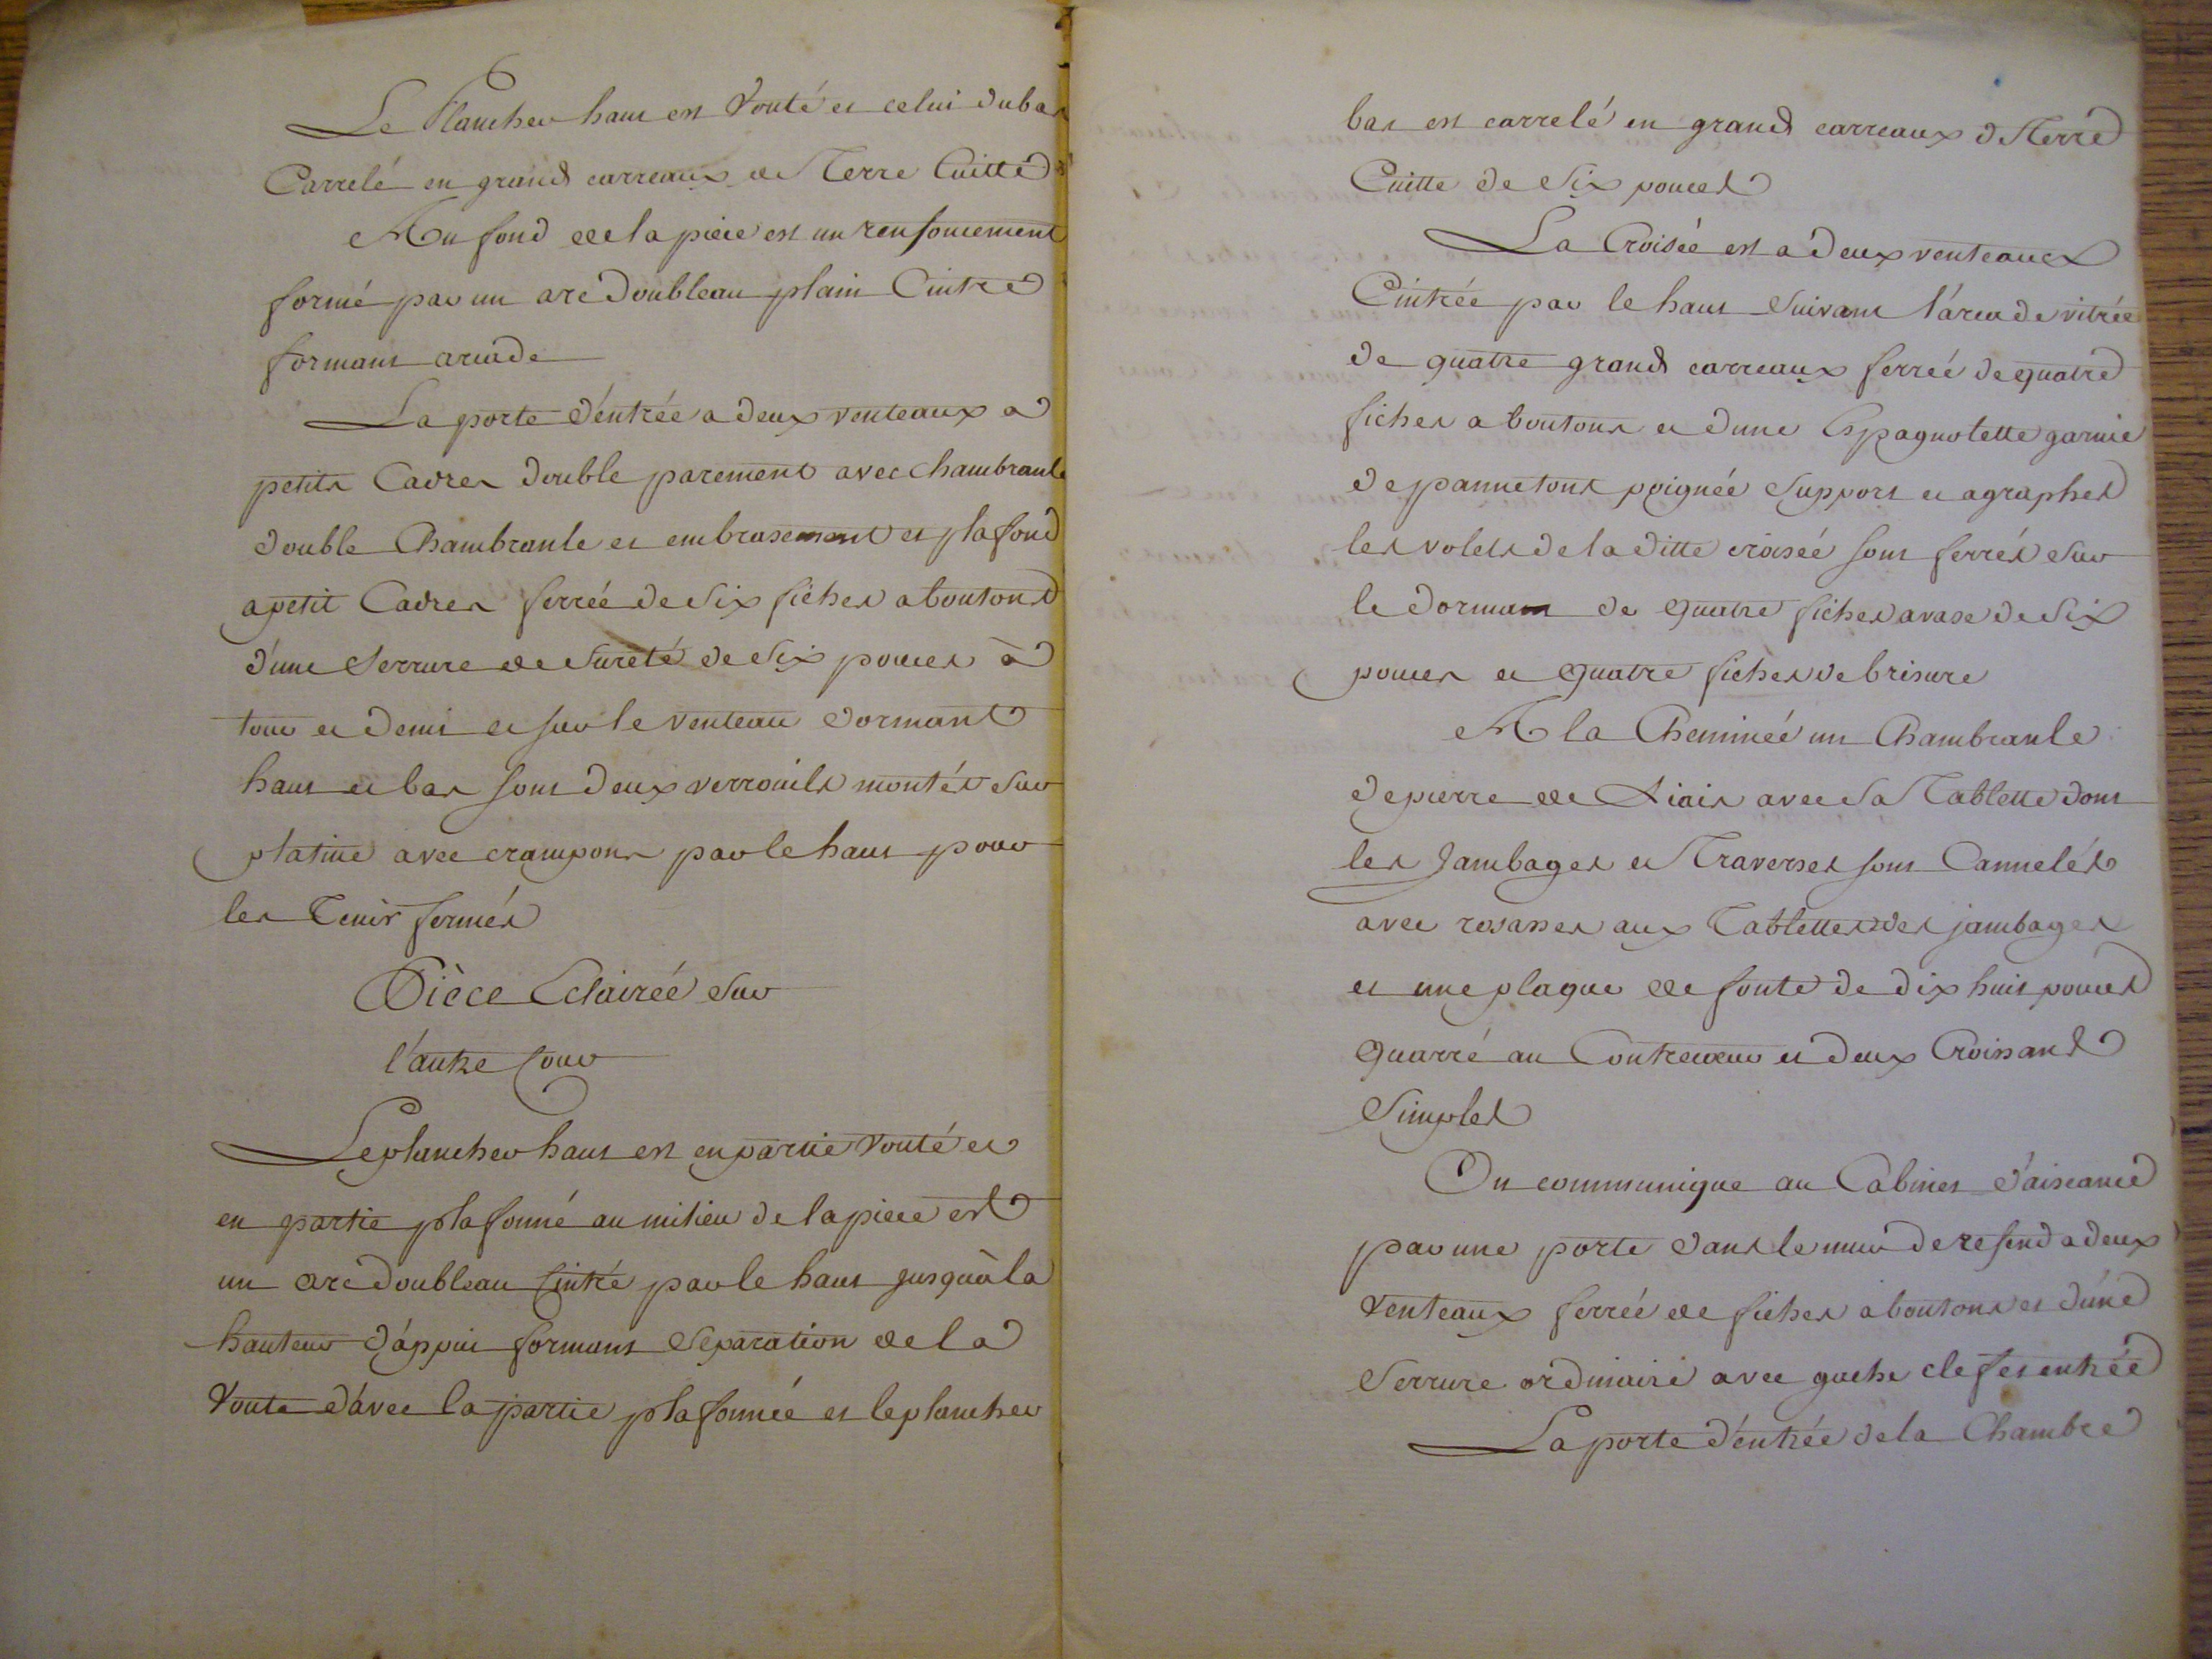 Le Plancher haut est Vouté et celui du bas
Carrelé en grands carreaux de Terre Cuitte
Au fond de la piece est un renfoncement
formé par un arc Doubleau plain Cintre
formant arcade
La porte d'entrée a deux venteaux a
petits Cadres double parement avec chambranle
double Chambranle et embrasement et plafond
a petit Cadres ferrée de Six fiches a boutons
d'une Serrure de Sureté de Six pouces à
tour et demi et sur le venteau dormant
haut et bas sont deux verrouils montés Sur
platine avec crampons par le haut pour
les Tenir fermés
Pièce Eclairée Sur
l'autre Cour
Le plancher haut est en partie Vouté et
en partie plafonné au milieu de la piece est
un arc doubleau Cintré par le haut jusqu'à la
hauteur d'áppui formant Séparation de la
Voute d'avec la partie plafonnée et le plancher
bas est carrelé en grands carreaux de Terre
Cuitte de Six pouces
La Croisée est a deux venteaux
Cintrée par le haut Suivant l'arcade vitrée
de quatre grands carreaux ferrée de quatre
fiches a boutons et d'une Espagnolette garnie
de pannetons poignée Support et agraphes
les volets de la ditte croisée sont ferrés Sur
le dormant de quatre fiches a vase de Six
pouces et quatre fiches de brisure
A la Cheminée un Chambranle
de pierre de Liais avec Sa Tablette dont
les Jambages et Traverses sont Cannelés
avec rosasses aux Tablettes des jambages
et une plaque de fonte de dix huit pouces
quarré au Contrecœur et deux Croissants
Simples
On communique au Cabinet d'aisance
par une porte dans le mur de refend a deux
Venteaux ferrée de fiches a boutons et d'une
Serrure ordinaire avec gache clef et entrée
La porte d'entrée de la Chambre